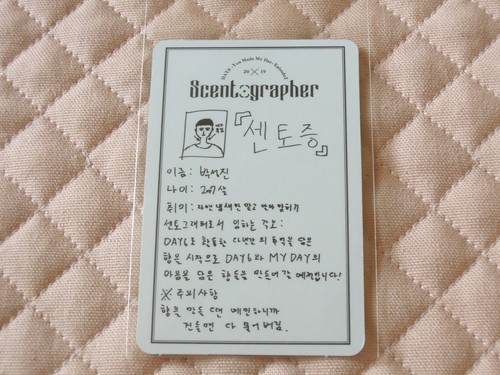 DAY6 <You Made My Day> Extended
2019
Scentographer
『센토증』
이름: 박성진
나이: 27살
취미: 자연 냄새 맡고 산책하기
센토그래퍼로서 임하는 각오:
DAY6로 활동한 다년간의 추억을 담은
향을 시작으로 DAY6와 MY DAY의
마음을 담은 향들을 만들어갈 예정입니다!
※ 주의사항
향을 만들 땐 예민하니까
건들면 다 물어버림.